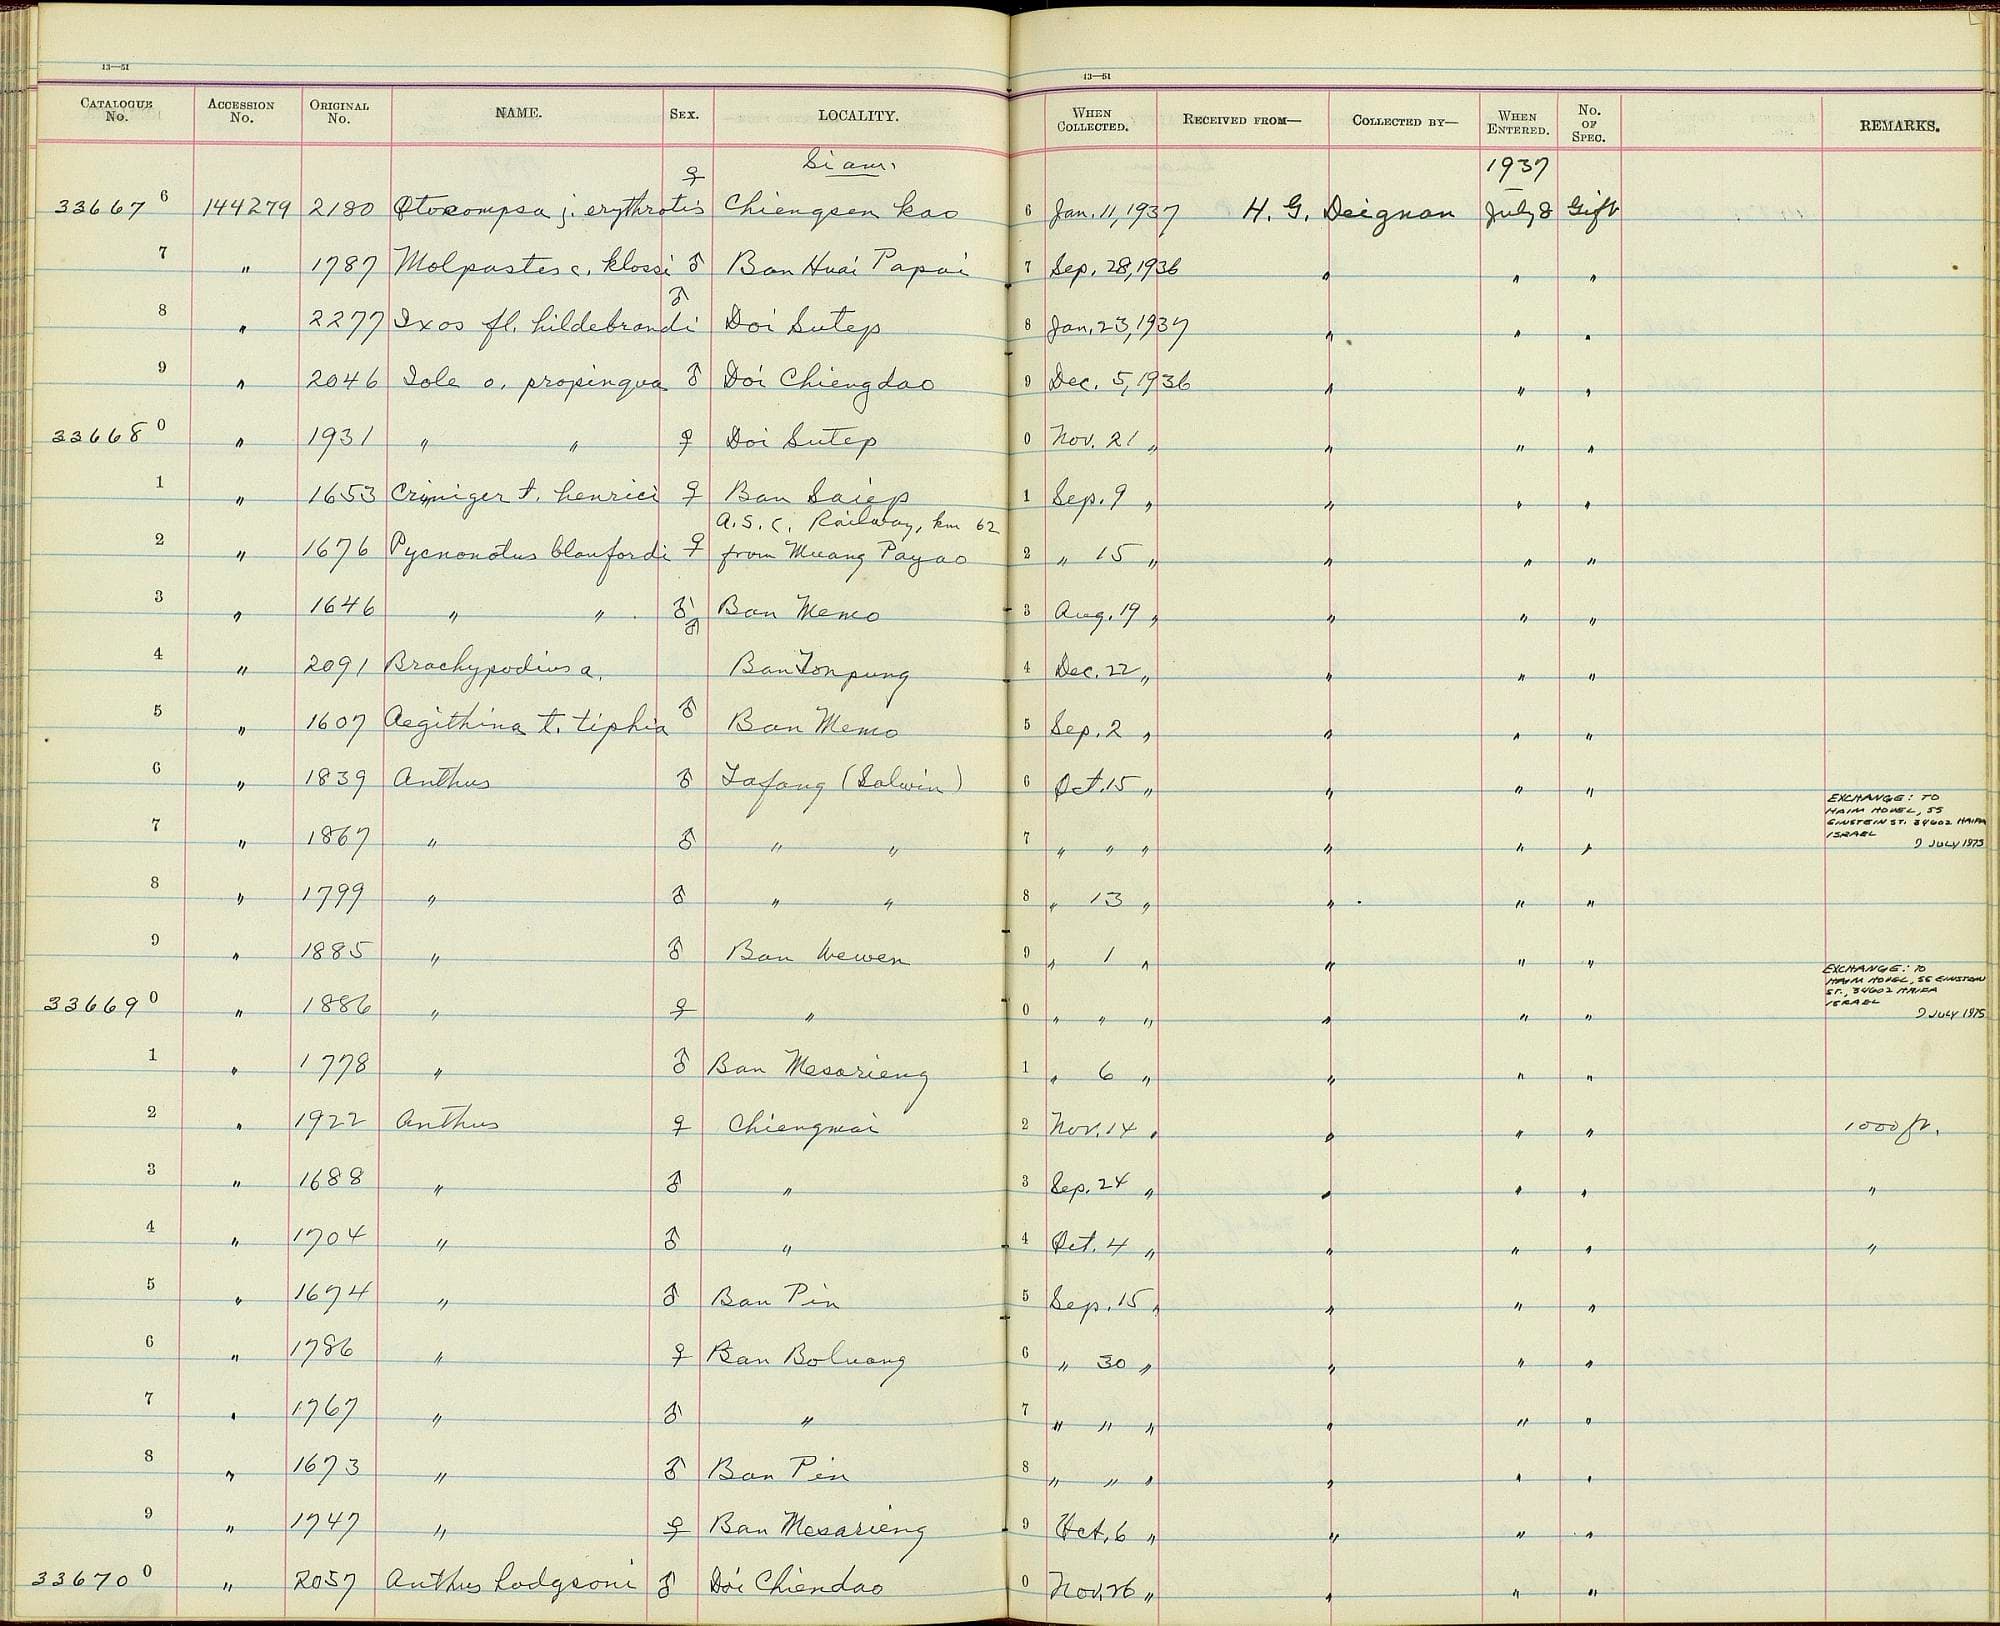 13—51
13—51
CATALOGUE No. ACCESSION No. ORIGINAL No. NAME. SEX. LOCALITY. WHEN COLLECTED. RECEIVED FROM— COLLECTED BY— WHEN ENTERED. No. OF SPEC. REMARKS.
Siam. 1937
33667 6 144279 2180 Otocompsa j. erythrotis ♀ Chiengsen Kao 6 Jan. 11, 1937 H. G. Deignan July 8 Gift
7 " 1787 Molpastes c. klossi ♂ Ban Huai Papai 7 Sep. 28, 1936 " " "
8 " 2277 Ixos fl. hildebrandi ♂ Doi Sutep 8 Jan. 23, 1937 " " "
9 " 2046 Iole o. propinqua ♂ Doi Chiengdao 9 Dec. 5, 1936 " " "
33668 0 " 1931 " " ♀ Doi Sutep 0 Nov. 21 " " " "
1 " 1653 Criniger t. henrici ♀ Ban Saiep 1 Sep. 9 " " " "
A.S.C. Railway, km 62
2 " 1676 Pycnonotus blanfordi ♀ from Muang Payao 2 " 15 " " " "
3 " 1646 " " ♂ Ban Memo 3 Aug. 19 " " " "
4 " 2091 Brachypodius a. ♂ Ban Tonpung 4 Dec. 22 " " " "
5 " 1607 Aegithina t. tiphia ♂ Ban Memo 5 Sep. 2 " " " "
6 " 1839 Anthus ♂ Tafang (Salwin) 6 Oct. 15 " " " "
EXCHANGE: TO
HAIM HOVEL, 55
EINSTEIN ST. 34602 HAIFA
ISRAEL
9 JULY 1975
7 " 1867 " ♂ " " 7 " " " " " "
8 " 1799 " ♂ " " 8 " 13 " " " "
9 " 1885 " ♂ Ban Wewen 9 " 1 " " " "
EXCHANGE: TO
HAIM HOVEL, 55 EINSTEIN
ST., 34602 HAIFA
ISRAEL
9 JULY 1975
33669 0 " 1886 " ♀ " 0 " " " " " "
1 " 1778 " ♂ Ban Mesarieng 1 " 6 " " " "
2 " 1922 Anthus ♀ Chiengmai 2 Nov. 14 " " " " 1000 ft.
3 " 1688 " ♂ " 3 Sep. 24 " " " " "
4 " 1704 " ♂ " 4 Oct. 4 " " " " "
5 " 1674 " ♂ Ban Pin 5 Sep. 15 " " " "
6 " 1786 " ♀ Ban Boluang 6 " 30 " " " "
7 " 1767 " ♂ " 7 " " " " " "
8 " 1673 " ♂ Ban Pin 8 " " " " " "
9 " 1747 " ♀ Ban Mesarieng 9 Oct. 6 " " " "
33670 0 " 2057 Anthus hodgsoni ♂ Doi Chiendao 0 Nov. 26 " " " "